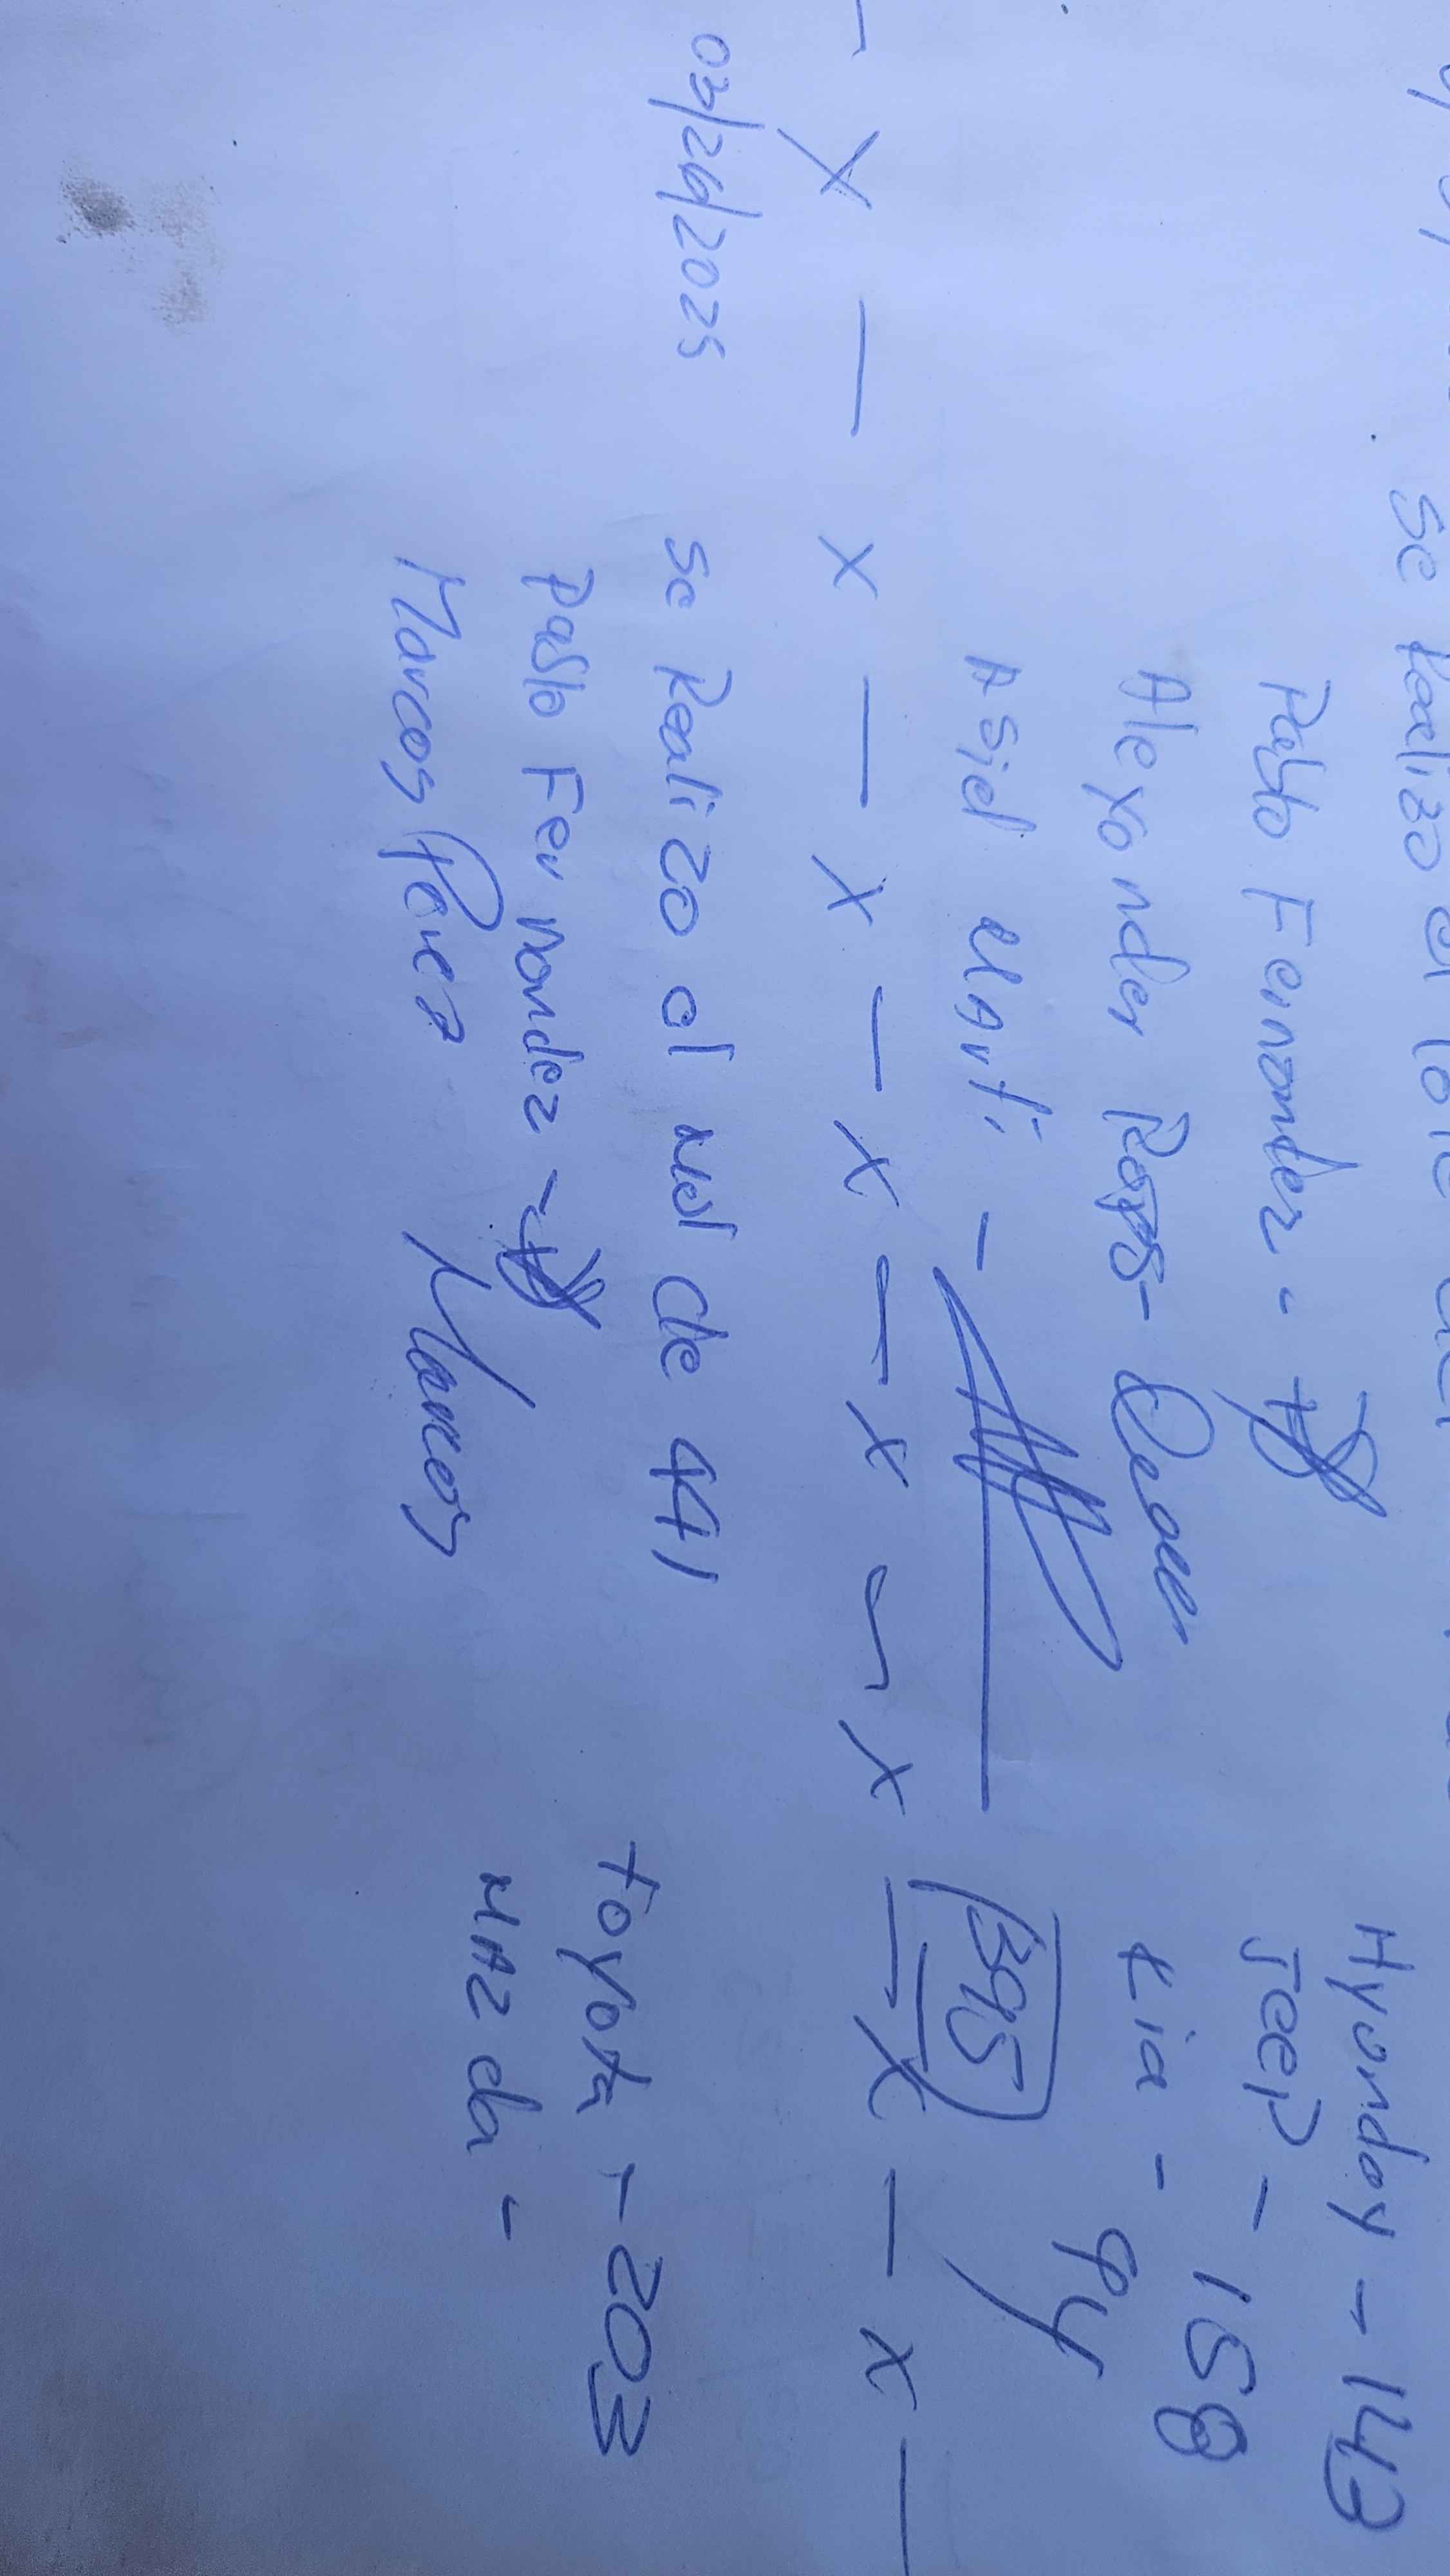 se Realizo el
Hyunday - 143
Pablo Fernandez -
Jeep - 158
Alexander Rojas -
Kia - 94
Asiel Marti -
395
x — x — x — x — x — x — x — x
03/26/2025 se Realizo al Nol de 441
Pablo Fernandez -
toyota - 203
Marcos Perez Marcos
MAZda -